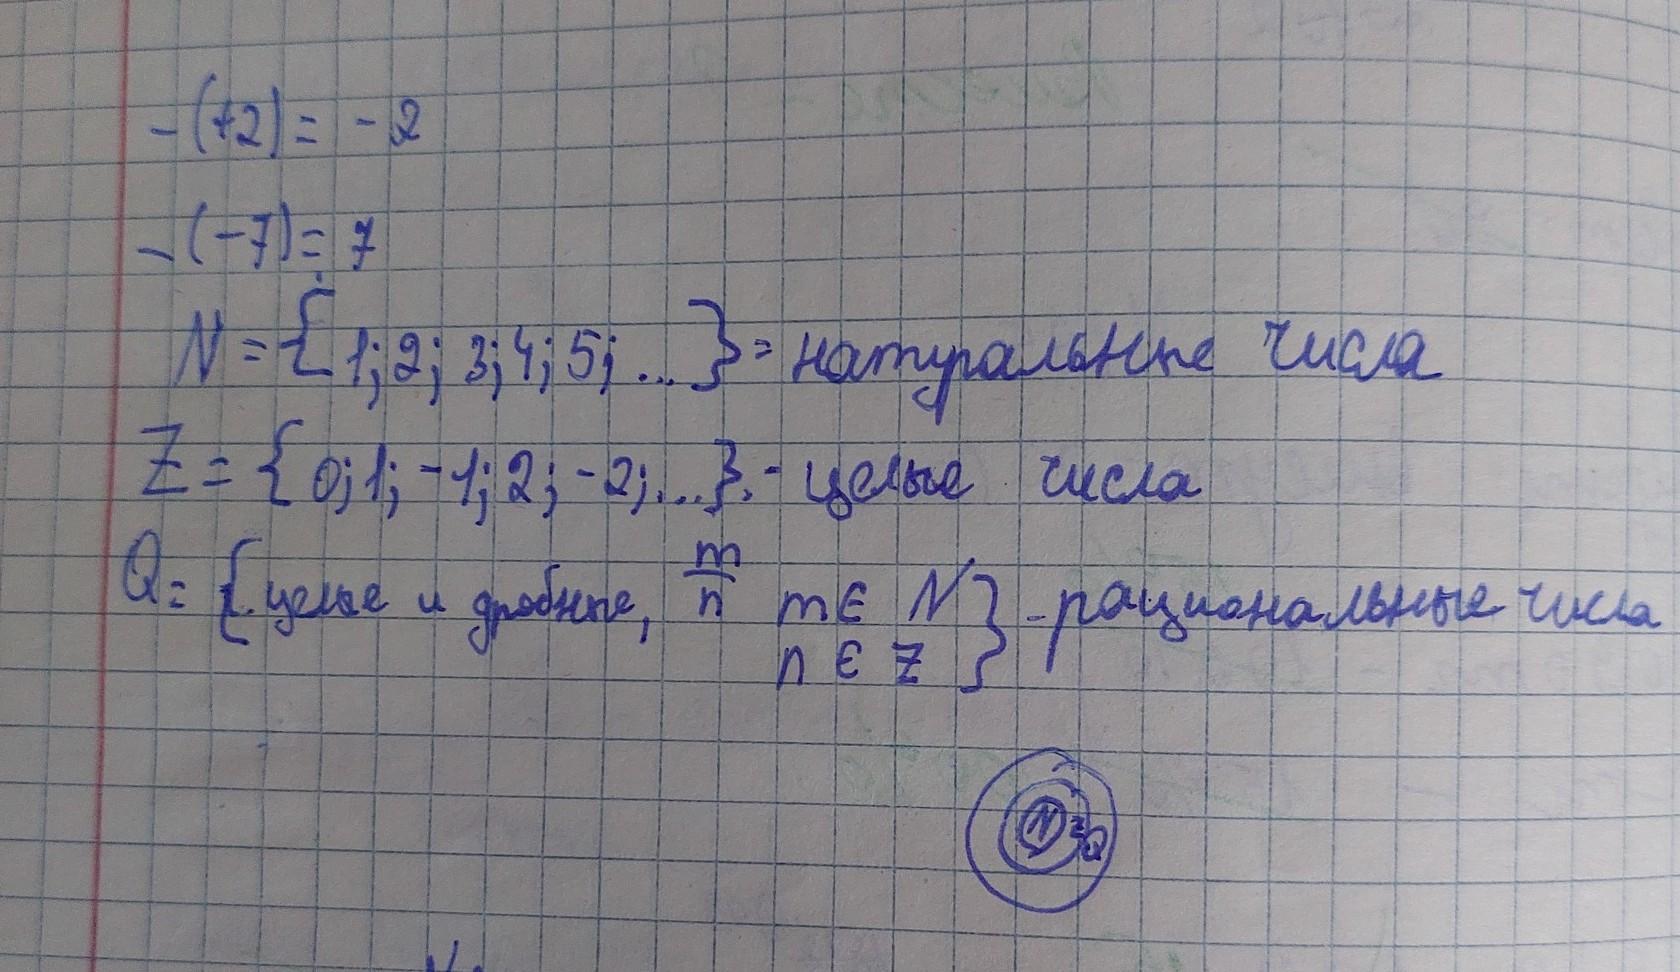 -(+2) = -2
-(-7) = 7
N = { 1; 2; 3; 4; 5; ... } = натуральные числа
Z = { 0; 1; -1; 2; -2; ... }. - целые числа
Q = { целые и дробные, m/n m ∈ N
n ∈ Z } - рациональные числа
N Z Q